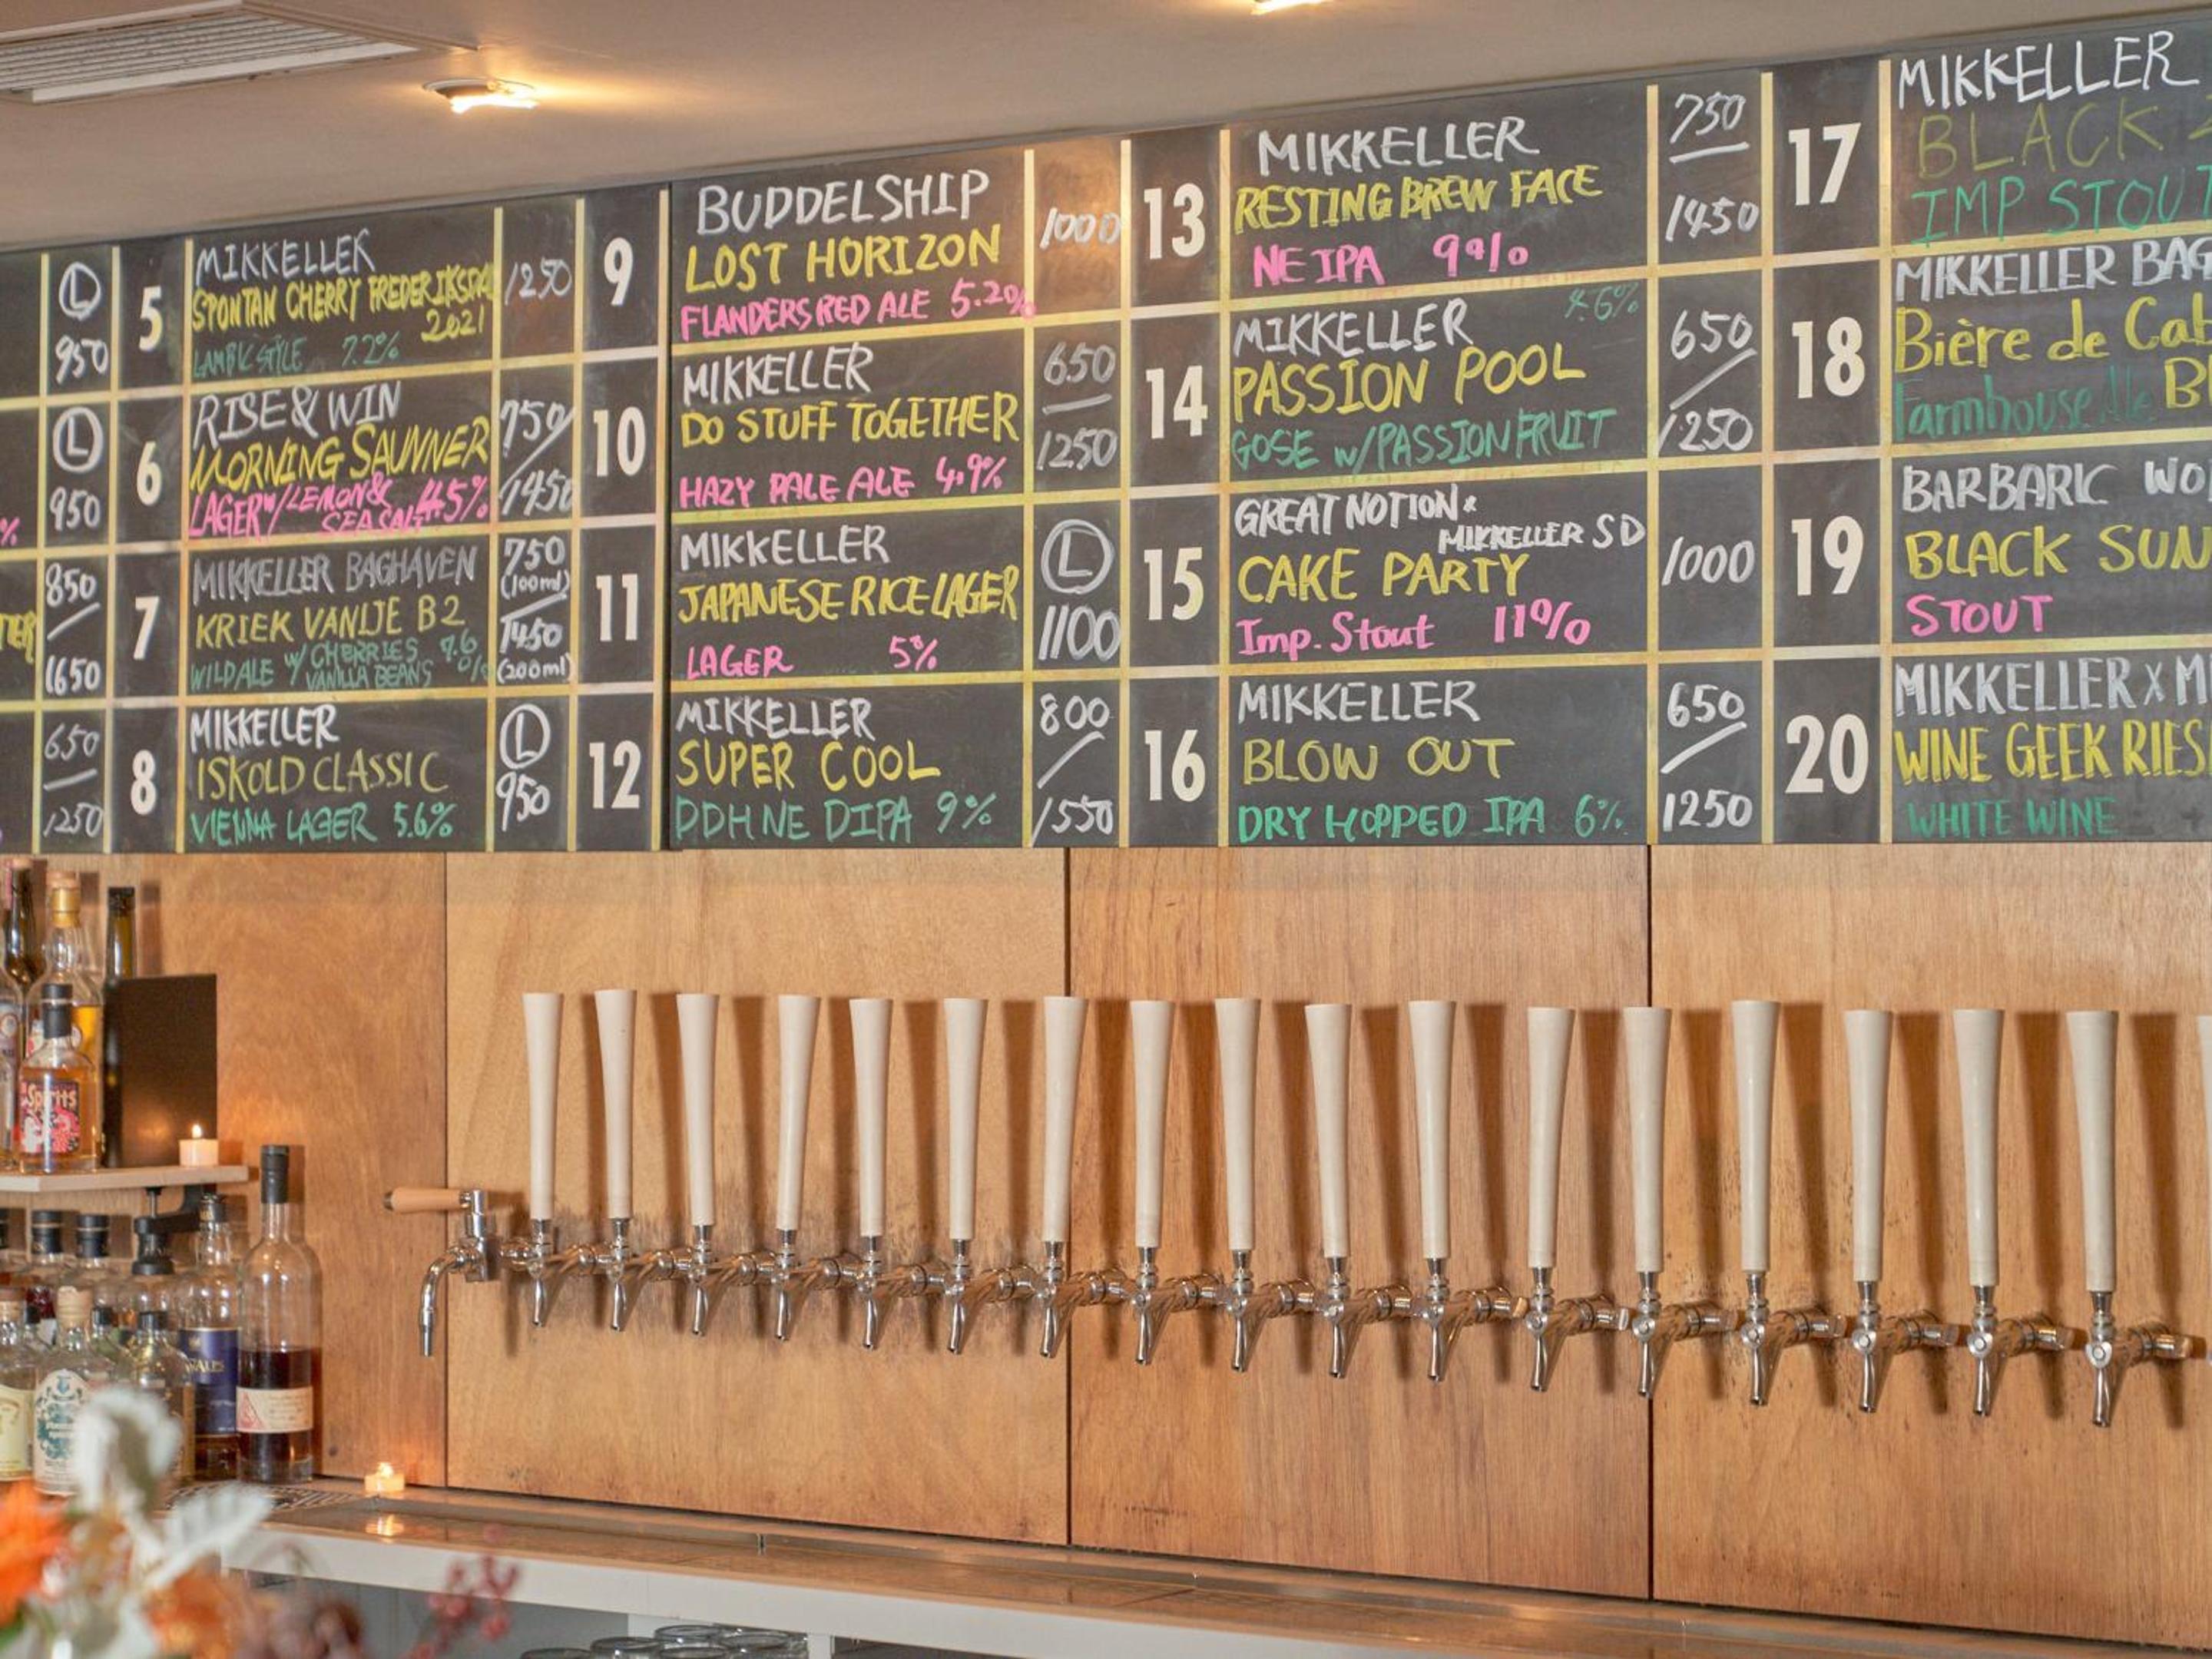 L
950
L
950
%
850
1650
TER
650
1250
5
MIKKELLER
SPONTAN CHERRY FREDERIKSDAL
2021
LAMBIC STYLE 7.2%
1250
6
RISE & WIN
MORNING SAUNNER
LAGER W/LEMON &
SEA SALT 4.5%
750
1450
7
MIKKELLER BAGHAVEN
KRIEK VANIJE B2
WILD ALE W/ CHERRIES 7.6
VANILLA BEANS %
750
(100ml)
1450
(200ml)
8
MIKKELLER
ISKOLD CLASSIC
VIENNA LAGER 5.6%
L
950
9
BUDDELSHIP
LOST HORIZON
FLANDERS RED ALE 5.2%
1000
10
MIKKELLER
DO STUFF TOGETHER
HAZY PALE ALE 4.9%
650
1250
11
MIKKELLER
JAPANESE RICE LAGER
LAGER 5%
L
1100
12
MIKKELLER
SUPER COOL
DDH NE DIPA 9%
800
1550
13
MIKKELLER
RESTING BREW FACE
NE IPA 9%
750
1450
14
MIKKELLER 4.6%
PASSION POOL
GOSE W/PASSIONFRUIT
650
1250
15
GREAT NOTION x
MIKKELLER SD
CAKE PARTY
Imp. Stout 11%
1000
16
MIKKELLER
BLOW OUT
DRY HOPPED IPA 6%
650
1250
17
MIKKELLER
BLACK
IMP STOUT
18
MIKKELLER BAG
Bière de Cab
Farmhouse Ale
19
BARBARIC WO
BLACK SUN
STOUT
20
MIKKELLER X M
WINE GEEK RIES
WHITE WINE
Spirits